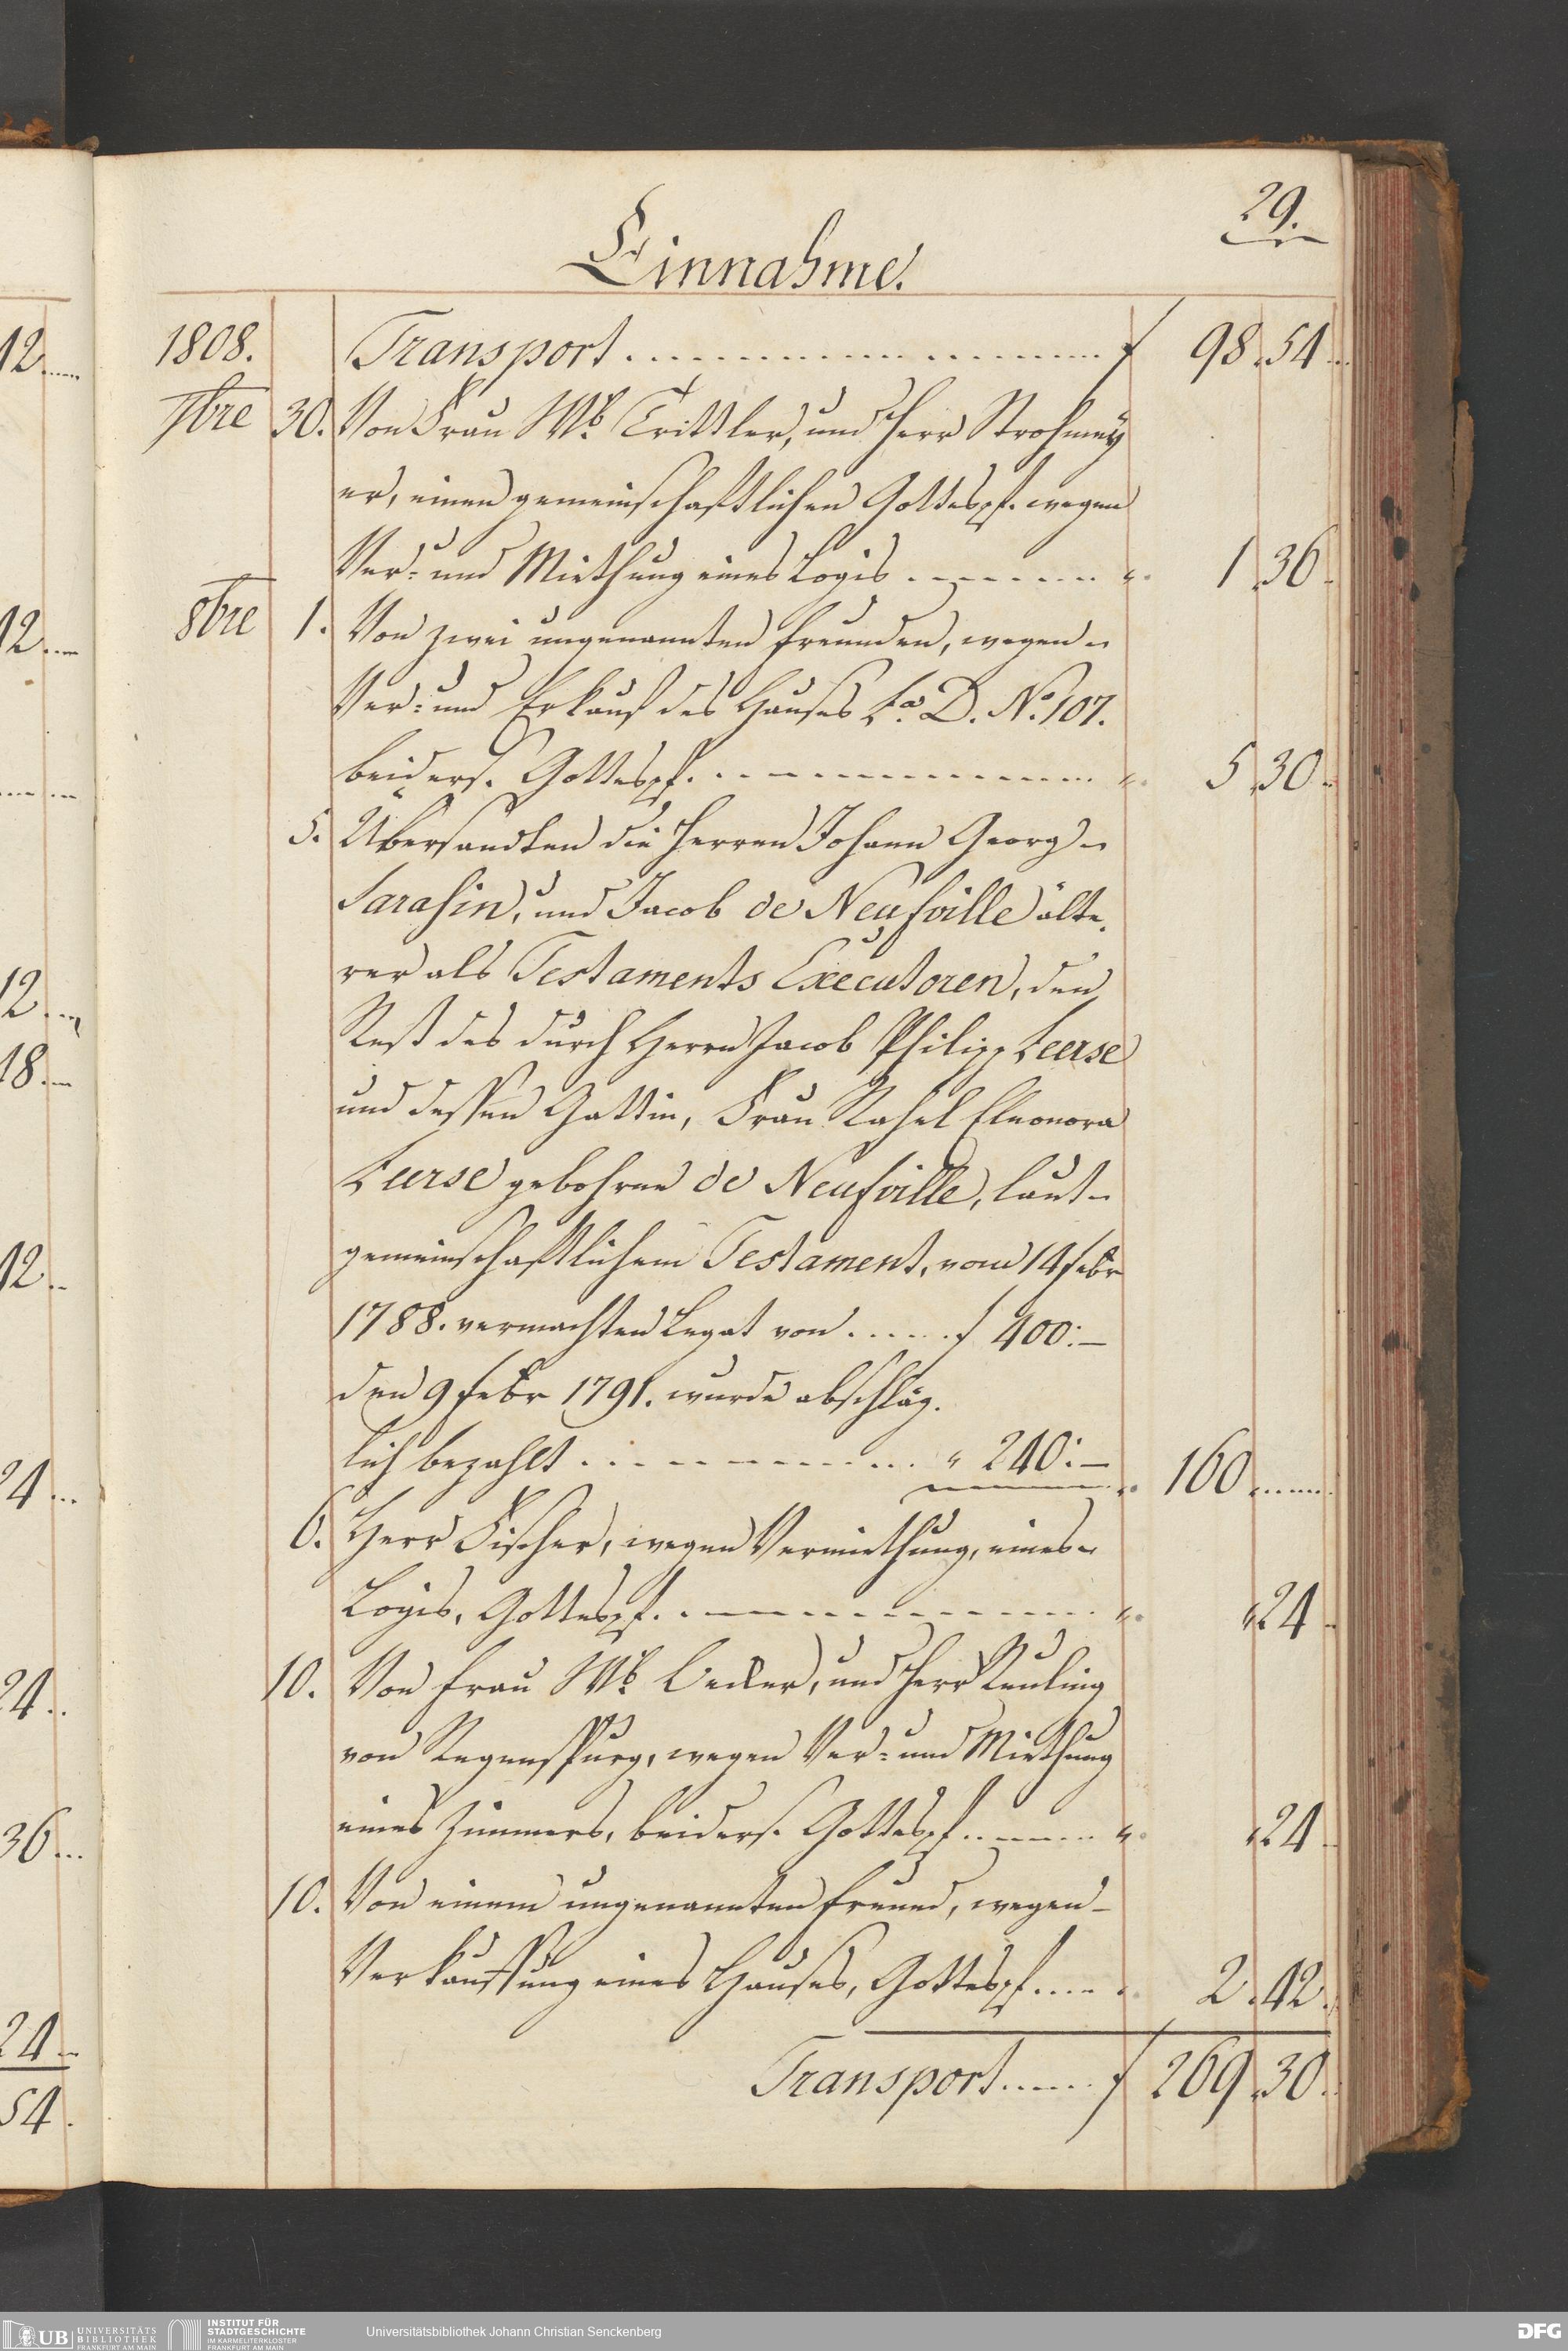 29.
Einnahme.
1808. Transport ........ f 98. 54.
7bre 30. Von Frau Wb. Trittler, und Herr Strohmey
er, einen gemeinschaftlichen Gottespf. wegen
Ver- und Miethung eines Logis ........ ". 1. 36.
8bre 1. Von zwei ungenannten Freunden, wegen
Ver- und Erkauf des Hauses La. D. No. 107.
beiders. Gottespf. ........ ". 5. 30.
5. Übersandten die Herren Johann Georg
Sarasin, und Jacob de Neufville älte.
rer als Testaments Executoren, den
Rest des durch Herrn Jacob Philipp Leerse
und dessen Gattin, Frau Rahel Eleonora
Leerse gebohrne de Neufville, laut
gemeinschaftlichem Testament, vom 14 Febr
1788. vermachten Legat von ...... f 400:–
den 9 Febr 1791. wurde abschläg.
lich bezahlt ........ " 240:– ". 160 ......
6. Herr Fischer, wegen Vermiethung, eines
Logis, Gottespf. ........ ". " 24.
10. Von Frau Wb. und Herr Reuling
von Regenspurg, wegen Ver- und Miethung
eines Zimmers, beiders. Gottespf. ...... ". " 24.
10. Von einem ungenannten Freund, wegen
Verkauffung eines Hauses, Gottespf. .... 2. 42.
Transport ...... f 269. 30.
12
12
12
18
12
24
24
36
24
54.
UB UNIVERSITÄTS
BIBLIOTHEK
FRANKFURT AM MAIN
INSTITUT FÜR
STADTGESCHICHTE
IM KARMELITERKLOSTER
FRANKFURT AM MAIN
Universitätsbibliothek Johann Christian Senckenberg
DFG